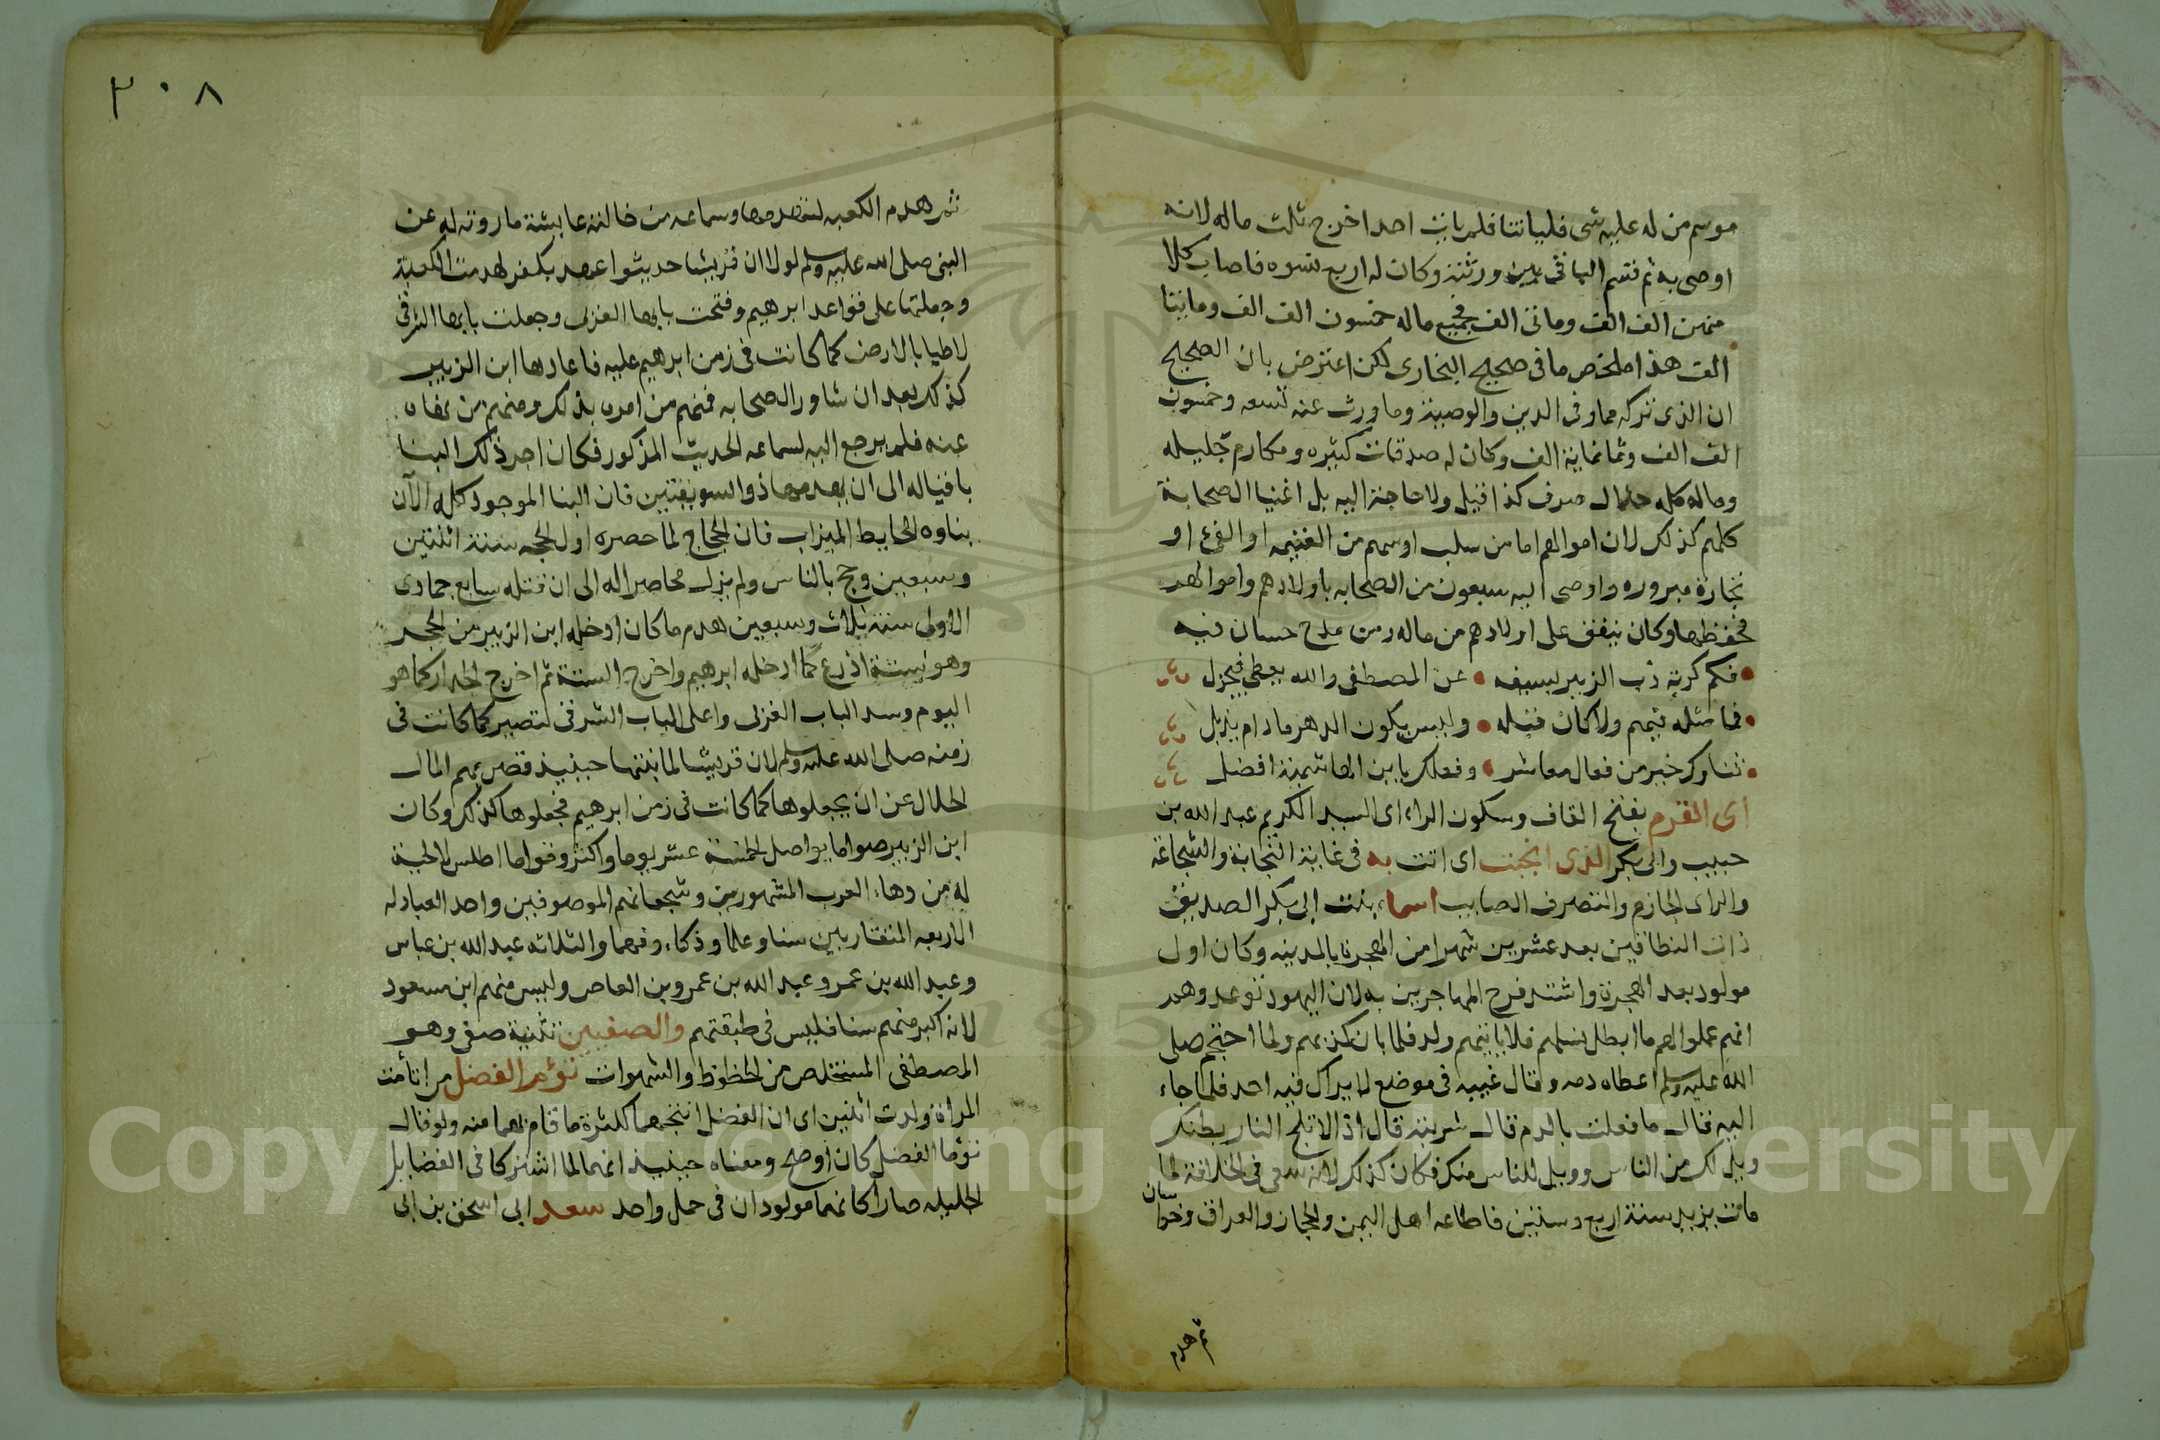 موسم من له عليه شى فلياتنا فلم يات احدا خرج ثلث ماله لانه
اوصى به ثم قسم الباقى بين ورثته وكان له اربع نسوه فاصاب كلا
منهن الف الف ومائتى الف فجميع ماله خمسون الف الف ومائتا
الف هذا ملخص ما فى صحيح البخارى لكن اعترض بان الصحيح
ان الذى تركه مما وفى الدين والوصية وما ورث عنه تسعه وخمسون
الف الف وثمانماية الف وكان له صدقات كثيره ومكارم جليله
وماله كله حلال صرف كذا قيل ولا حاجة اليه بل اغنيا الصحابة
كلهم كذلك لان اموالهم اما من سلب او سهم من الغنيمه او الفئ او
تجارة مبروره واوصى اليه سبعون من الصحابه باولادهم واموالهم
فحفظها وكان ينفق على اولادهم من ماله ومن مدح حسان فيه
فكم كربة ذب الزبير بسيفه • عن المصطفى والله يعطى فيجزل
فما مثله فيهم ولا كان قبله • وليس يكون الدهر ما دام يذبل
ثناوك خير من فعال معاشر • وفعلك يا ابن الهاشمية افضل
اى القرم بفتح القاف وسكون الراء اى السيد الكريم عبد الله بن
حبيب وابى بكر الذى انجبت اى اتت به فى غاية النجابة والشجاعة
والراى الحازم والتصرف الصايب اسماء بنت ابى بكر الصديق
ذات النطاقين بعد عشرين شهرا من الهجرة بالمدينه وكان اول
مولود بعد الهجرة واشتد فرح المهاجرين به لان اليهود توعدوهم
انهم عملوا لهم ما ابطل نسلهم فلا ياتيهم ولد فلما بان كذبهم ولما احتجم صلى
الله عليه وسلم اعطاه دمه وقال غيبه فى موضع لا يراك فيه احد فلما جاء
اليه قال ما فعلت بالدم قال شربته قال اذا لا تلج النار بطنك
ويل لك من الناس وويل للناس منك فكان كذلك لانه سعى فى الخلافة لما
مات يزيد سنة اربع وستين فاطاعه اهل اليمن والحجاز والعراق وخراسان
ثم هدم
٣٠٨
ثم هدم الكعبه لنقصها وسماعه من خالته عايشة ما روته له عن
النبى صلى الله عليه وسلم لولا ان قريشا حديثوا عهد بكفر لهدمت الكعبة
وجعلتها على قواعد ابرهيم وفتحت بابها الغربى وجعلت بابها الشرقى
لاطيا بالارض كما كانت فى زمن ابرهيم عليه فاعادها ابن الزبير
كذلك بعد ان شاور الصحابه فمنهم من امره بذلك ومنهم من نهاه
عنه فلم يرجع اليه لسماعه الحديث المذكور فكان احد ذلك البنا
باقيا له الى ان يهدمها ذو السويقتين فان البنا الموجود كله الآن
بناوه الحايط الميزاب فان الحجاج لما حصره اول الحجه سنة اثنتين
وسبعين وحج بالناس ولم يزل محاصرا له الى ان قتله سابع جمادى
الاولى سنة ثلاث وسبعين هدم ما كان ادخله ابن الزبير من الحجر
وهو ستة اذرع كما ادخله ابرهيم واخرج الستة ثم اخرج الجدار كما هو
اليوم وسد الباب الغربى واعلى الباب الشرقى لتصير كما كانت فى
زمنه صلى الله عليه وسلم لان قريشا لما بنتها حينيذ قصر بهم المال
الحلال عن ان يجعلوها كما كانت فى زمن ابرهيم فجعلوها كذلك وكان
ابن الزبير صواما يواصل الخمسة عشر يوما واكثر وقواما اطلس لا لحية
له من دهاء العرب المشهورين وشجعانهم الموصوفين واحد العبادله
الاربعه المتقاربين سنا وعلما وذكاء وفهما والثلاثه عبد الله بن عباس
وعبد الله بن عمر وعبد الله بن عمرو بن العاص وليس منهم ابن مسعود
لانه اكبر منهم سنا فليس فى طبقتهم والصفيين تثنية صفى وهو
المصطفى المستخلص من الحظوظ والشهوات توءم الفضل من اتأمت
المراة ولدت اثنين اى ان الفضل انتجهما لكثرة ما قام بهما منه ولو قال
توءما الفضل كان اوضح ومعناه حينيذ انهما لما اشتركا فى الفضايل
الجليله صارا كانهما مولودان فى حمل واحد سعد ابى اسحق بن ابى